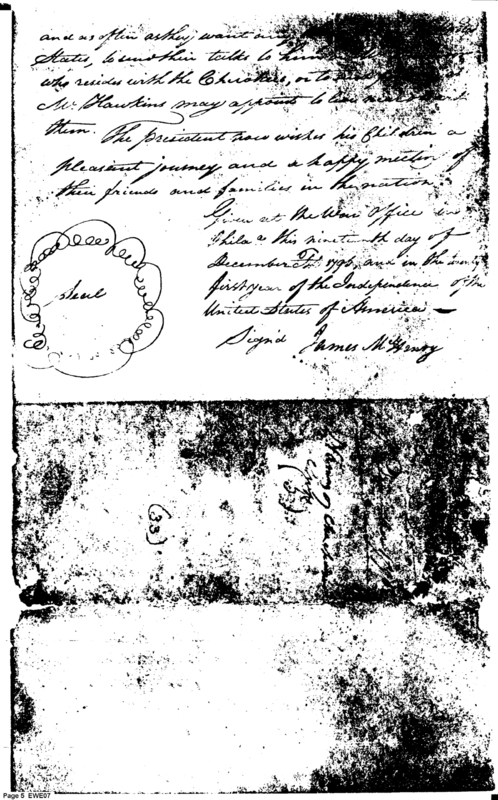 and as often as they want any
States, to send their talks to him
who resides with the Cherokees, or to
Mr. Hawkins may appoint to live near
them. The president now wishes his Children a
pleasant journey and a happy meeting of
their friends and families in the nation.
Given at the War Office in
Phila. this nineteenth day of
December 1796, and in the
first year of the Independence of the
United States of America —
Seal
Sign'd James McHenry
(33)
Page 5 EWE07